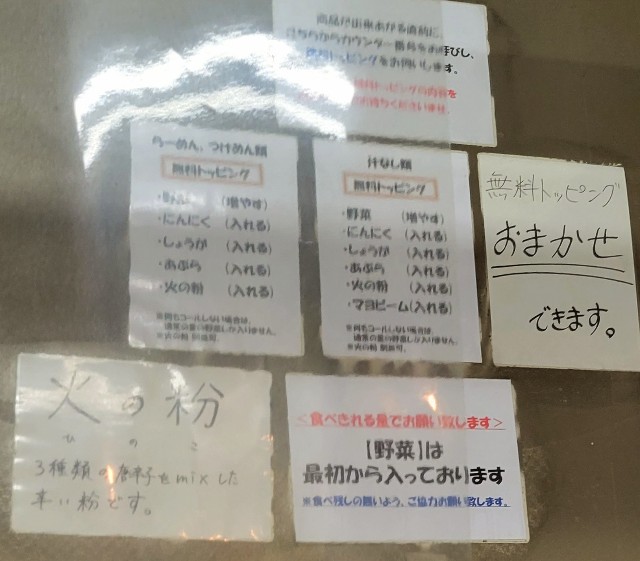 商品が出来あがる直前に、
こちらからカウンター番号をお呼びし、
無料トッピングをお伺いします。
無料トッピングの内容を
お待ちくださいませ。
らーめん、つけめん類
無料トッピング
・野菜 (増やす)
・にんにく (入れる)
・しょうが (入れる)
・あぶら (入れる)
・火の粉 (入れる)
※何もコールしない場合は、
通常の量の野菜しか入りません。
※火の粉 別皿可。
汁なし類
無料トッピング
・野菜 (増やす)
・にんにく (入れる)
・しょうが (入れる)
・あぶら (入れる)
・火の粉 (入れる)
・マヨビーム(入れる)
※何もコールしない場合は、
通常の量の野菜しか入りません。
※火の粉 別皿可。
無料トッピング
おまかせ
できます。
火の粉
ひ の こ
3種類の唐辛子をmixした
辛い粉です。
<食べきれる量でお願い致します>
【野菜】は
最初から入っております
※食べ残しの無いよう、ご協力お願い致します。